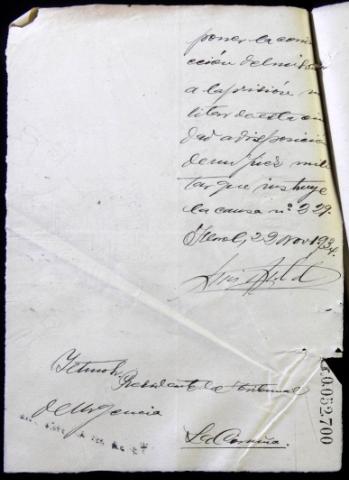 poner la conu
cción del mismo
a la prisión mi
litar de esta ciu
dad a disposición
de un juez mili
tar que instruye
la causa nº 229.
Ferrol, 29 Nov 1934.
Presidente de Tribunal
de Urgencia
La Coruña.
0.052.700